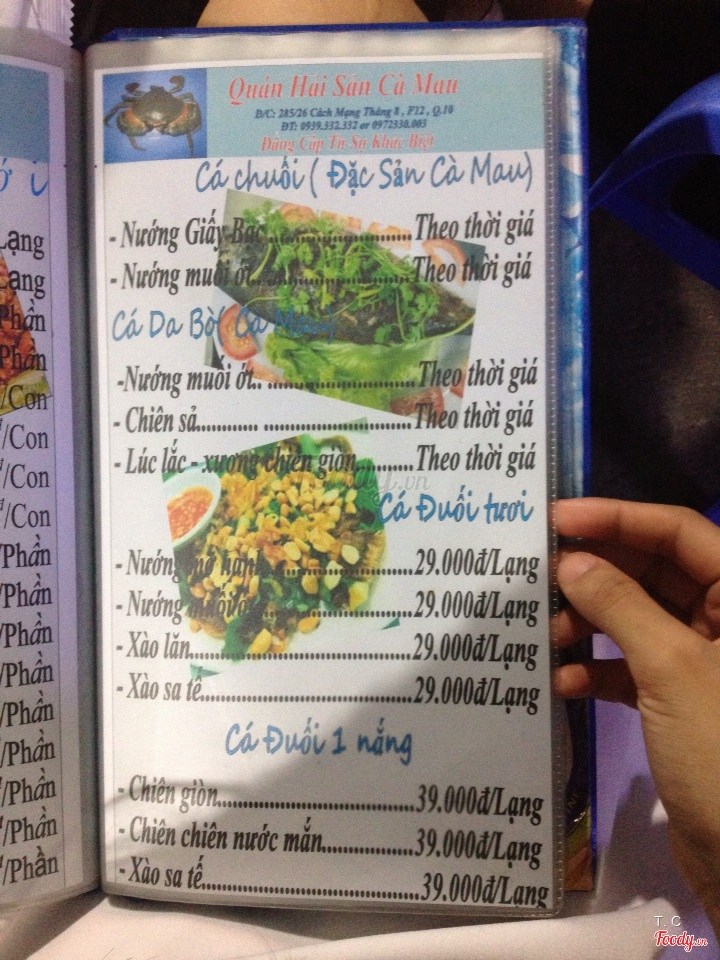 Quán Hải Sản Cà Mau
Đ/C: 285/26 Cách Mạng Tháng 8 , F12 , Q.10
ĐT: 0939.332.332 or 0972330.003
Đẳng Cấp Từ Sự Khác Biệt
Cá chuối ( Đặc Sản Cà Mau)
- Nướng Giấy Bạc ........................ Theo thời giá
- Nướng muối ớt........................ Theo thời giá
Cá Da Bò( Cà Mau)
-Nướng muối ớt.. ........................ Theo thời giá
- Chiên sả............ ........................ Theo thời giá
- Lúc lắc - xương chiên giòn.......... Theo thời giá
Cá Đuối tươi
- Nướng mỡ hành........................29.000đ/Lạng
- Nướng muối ớt........................29.000đ/Lạng
- Xào lăn........................29.000đ/Lạng
- Xào sa tế........................29.000đ/Lạng
Cá Đuối 1 nắng
- Chiên giòn........................39.000đ/Lạng
- Chiên chiên nước mắn..............39.000đ/Lạng
- Xào sa tế........................39.000đ/Lạng
Lạng
Lạng
Phần
Phần
/Con
/Con
/Con
/Con
/Phần
/Phần
/Phần
/Phần
/Phần
/Phần
/Phần
/Phần
/Phần
T.C
Foody.vn